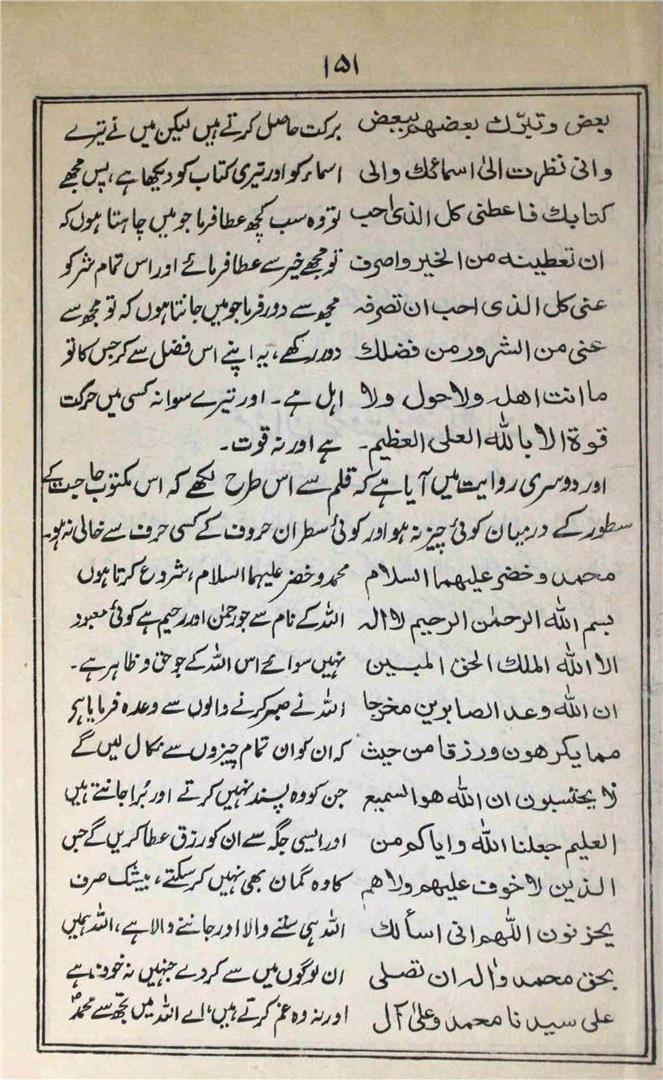 ۱۵۱
بعض وتبرّك بعضهم ببعض
وانی نظرت الیٰ اسمائك والی
كتابك فاعطنی كل الذی احب
ان تعطينه من الخير واصرف
عنی كل الذی احب ان تصرفه
عنی من الشرور من فضلك
ما انت اهله ولا حول ولا
قوة الا بالله العلی العظيم۔
برکت حاصل کرتے ہیں لیکن میں نے تیرے
اسماء کو اور تیری کتاب کو دیکھا ہے، پس مجھے
تو وہ سب کچھ عطا فرما جو میں چاہتا ہوں کہ
تو مجھے خیر سے عطا فرمائے اور اس تمام شر کو
مجھ سے دور فرما جو میں جانتا ہوں کہ تو مجھ سے
دور رکھے، یہ اپنے اس فضل سے کر جس کا تو
اہل ہے۔ اور تیرے سوا نہ کسی میں حرکت
ہے اور نہ قوت۔
اور دوسری روایت میں آیا ہے کہ قلم سے اس طرح لکھے کہ اس مکتوب حاجت کے
سطور کے درمیان کوئی چیز نہ ہو اور کوئی سطر ان حروف کے کسی حرف سے خالی نہ ہو۔
محمد وخضر عليهما السلام
بسم الله الرحمٰن الرحيم لا اله
الا الله الملك الحق المبين
ان الله وعد الصابرين مخرجا
مما يكرهون ورزقا من حيث
لا يحتسبون ان الله هو السميع
العليم جعلنا الله واياكم من
الذين لا خوف عليهم ولا هم
يحزنون اللهم انی اسألك
بحق محمد واله ان تصلی
علی سيدنا محمد وعلیٰ آل
محمد و خضر علیہما السلام، شروع کرتا ہوں
اللہ کے نام سے جو رحمٰن اور رحیم ہے کوئی معبود
نہیں سوائے اس اللہ کے جو حق و ظاہر ہے۔
اللہ نے صبر کرنے والوں سے وعدہ فرمایا ہے
کہ ان کو ان تمام چیزوں سے نکال لیں گے
جن کو وہ پسند نہیں کرتے اور بُرا جانتے ہیں
اور ایسی جگہ سے ان کو رزق عطا کریں گے جس
کا وہ گمان بھی نہیں کر سکتے، بیشک صرف
اللہ ہی سننے والا اور جاننے والا ہے، اللہ ہمیں
ان لوگوں میں سے کر دے جنہیں نہ خوف ہے
اور نہ وہ غم کرتے ہیں، اے اللہ میں تجھ سے محمدؐ